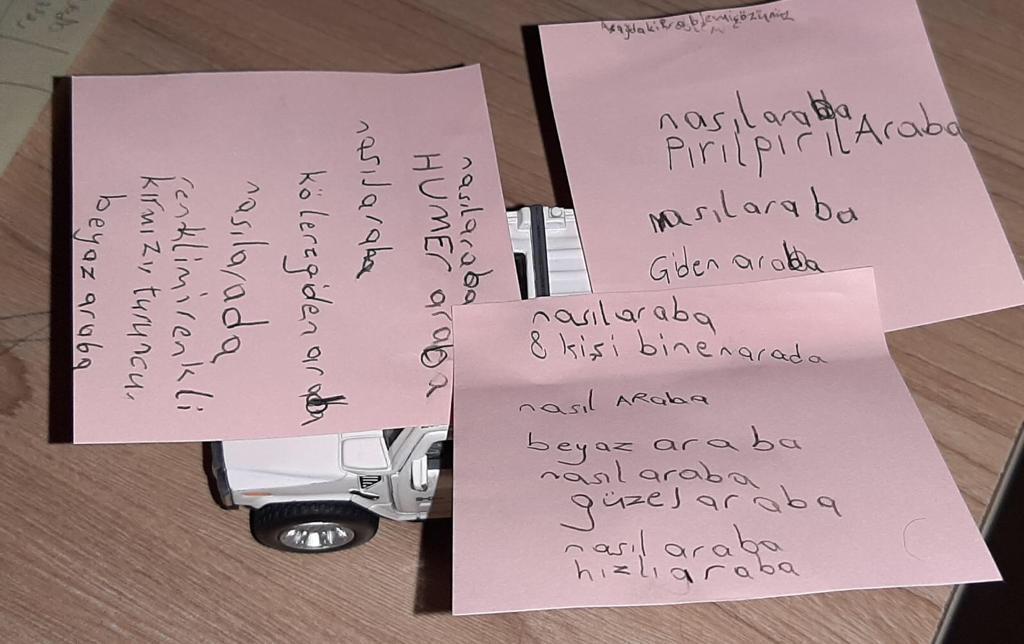 nasılaraba
HUMER araba
nasılaraba
nasılarada
renklimirenkli
kırmızı turuncu,
beyaz araba
nasılaraba
PırılpırılAraba
nasılaraba
Giden araba
nasılaraba
8 kişi binenarada
nasıl ARaba
beyaz araba
nasılaraba
güzelaraba
nasılaraba
hızlıaraba